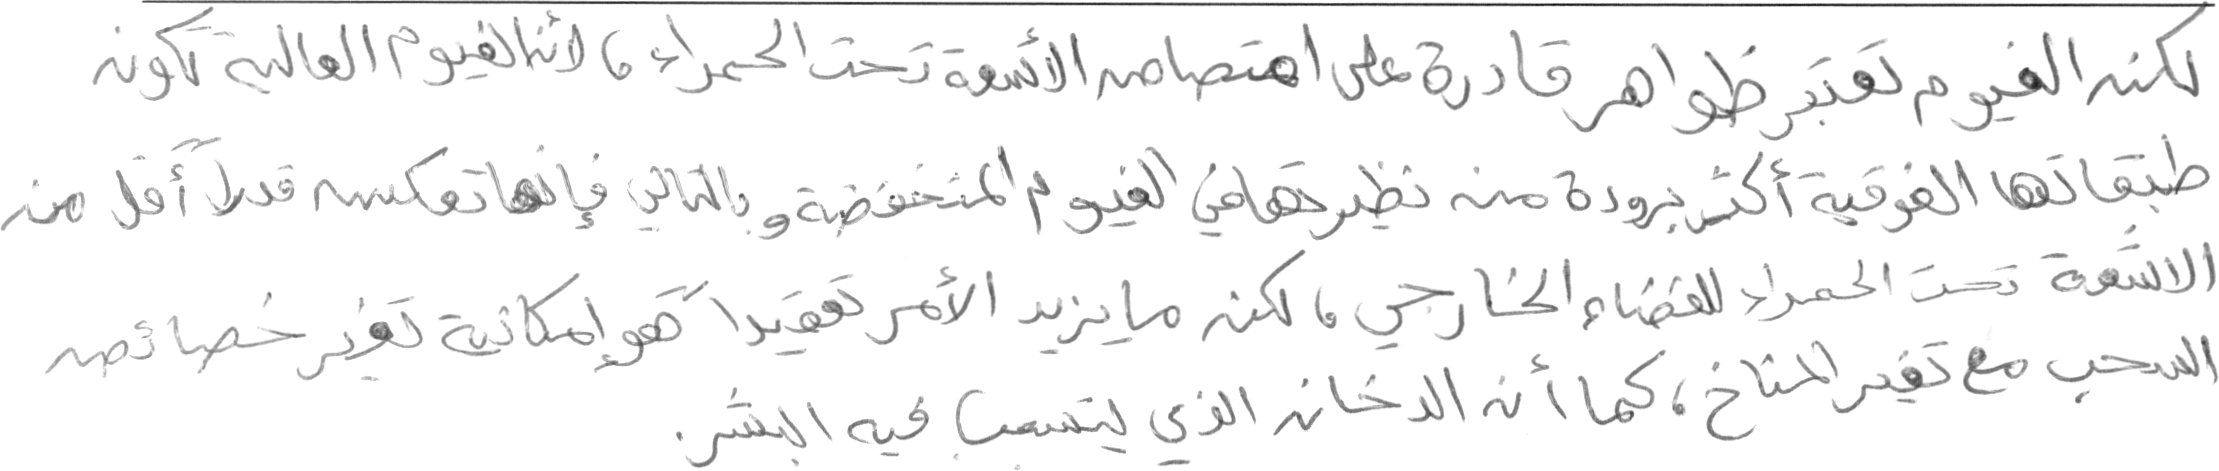 لكن الغيوم تعتبر ظواهر قادرة على امتصاص الأشعة تحت الحمراء، لأن الغيوم العالية تكون
طبقاتها الفوقية أكثر برودة من نظيرتها في الغيوم المنخفضة وبالتالي فإنها تعكس قدراً أقل من
الاشعة تحت الحمراء للفضاء الخارجي، لكن ما يزيد الأمر تعقيداً هو إمكانية تغير خصائص
السحب مع تغير المناخ، كما أن الدخان الذي يتسبب فيه البشر.